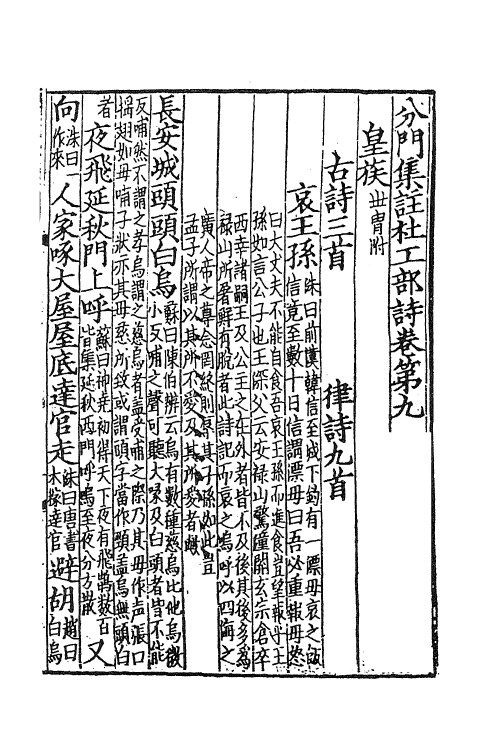 分門集註杜工部詩卷第九
皇族丗冑附
古詩三首　律詩九首
哀王孫
洙曰前漢韓信至城下釣有一漂母哀之飯
信竟至數十日信謂漂母曰吾必重報母怒
曰大丈夫不能自食吾哀王孫而進食豈望報乎王
孫如言公子也王深父云安禄山驚潼關玄宗倉卒
西幸諸嗣王及公主之在外者皆不及後其後多為
禄山所屠鮮有脫者此詩記而哀之嗚呼以四海之
廣人帝之尊念罔統則辱其子孫如此豈
孟子所謂以其所不愛及其所愛者歟
長安城頭頭白烏
蘇曰陳伯辨云烏有數種慈烏比他烏微
小反哺之聲可聽大喙及白頭者皆不能
反哺然不謂之孝烏謂之慈烏者盖受哺之際乃其母作声張口
搨翅如母哺子狀亦其母慈所致或謂頭字當作頸盖烏無頭白
者
夜飛延秋門上呼
蘇曰神堯初得天下夜有飛鵲数百
皆集延秋西門呼鳴至夜分方散
又
向
洙曰一
作來
人家啄大屋屋底達官走
洙曰唐書
木稼達官
避胡
趙曰
白烏